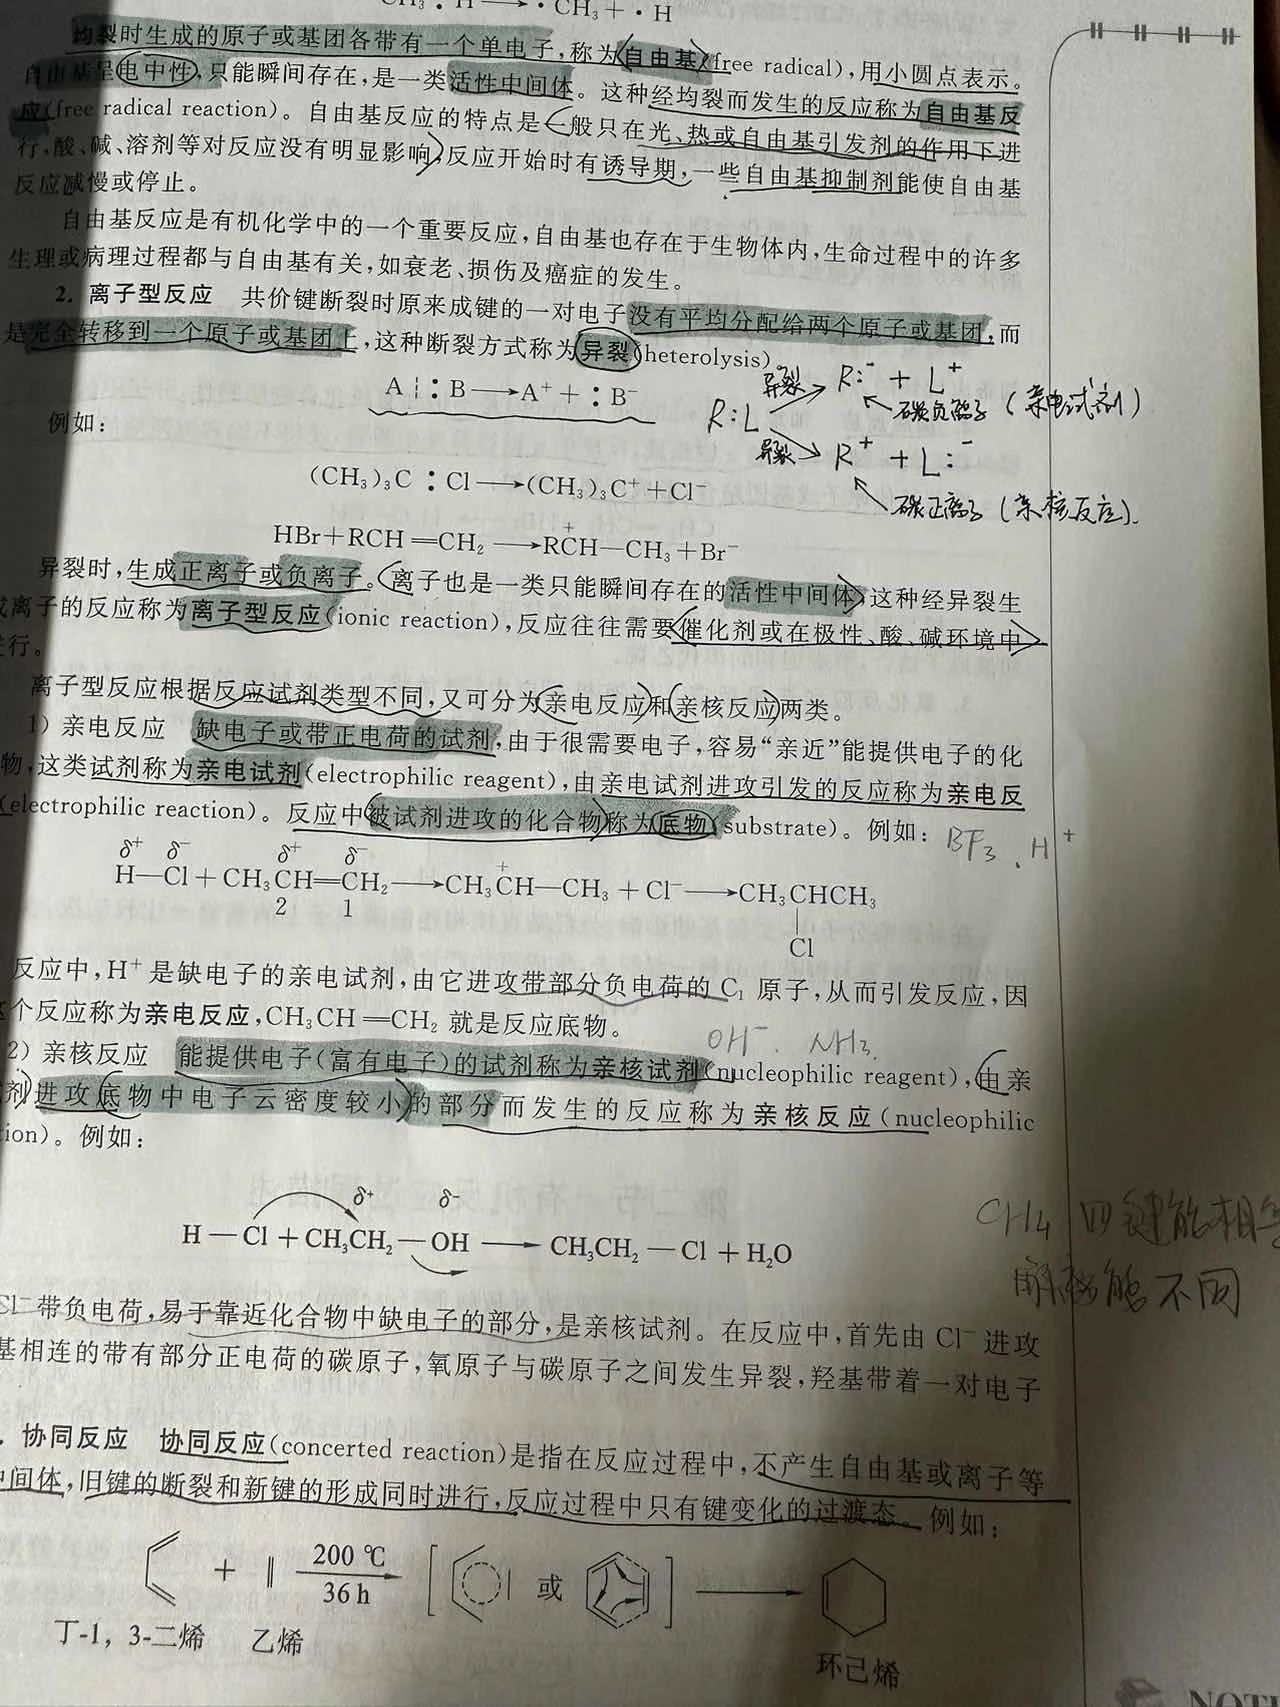 CH₃ : H ⟶ · CH₃ + · H
均裂时生成的原子或基团各带有一个单电子,称为(自由基)(free radical),用小圆点表示。
自由基呈电中性,只能瞬间存在,是一类活性中间体。这种经均裂而发生的反应称为自由基反
应(free radical reaction)。自由基反应的特点是一般只在光、热或自由基引发剂的作用下进
行,酸、碱、溶剂等对反应没有明显影响,反应开始时有诱导期,一些自由基抑制剂能使自由基
反应减慢或停止。
自由基反应是有机化学中的一个重要反应,自由基也存在于生物体内,生命过程中的许多
生理或病理过程都与自由基有关,如衰老、损伤及癌症的发生。
2. 离子型反应 共价键断裂时原来成键的一对电子没有平均分配给两个原子或基团,而
是完全转移到一个原子或基团上,这种断裂方式称为异裂(heterolysis)
A ¦ : B ⟶ A⁺ + : B⁻
R:L
异裂 R:⁻ + L⁺
碳负离子 (亲电试剂)
异裂 R⁺ + L:⁻
碳正离子 (亲核反应).
例如:
(CH₃)₃C : Cl ⟶ (CH₃)₃C⁺ + Cl⁻
HBr + RCH=CH₂ ⟶ RC⁺H—CH₃ + Br⁻
异裂时,生成正离子或负离子。离子也是一类只能瞬间存在的活性中间体,这种经异裂生
成离子的反应称为离子型反应(ionic reaction),反应往往需要催化剂或在极性、酸、碱环境中
进行。
离子型反应根据反应试剂类型不同,又可分为亲电反应和亲核反应两类。
1) 亲电反应 缺电子或带正电荷的试剂,由于很需要电子,容易“亲近”能提供电子的化
物,这类试剂称为亲电试剂(electrophilic reagent),由亲电试剂进攻引发的反应称为亲电反
(electrophilic reaction)。反应中被试剂进攻的化合物称为底物(substrate)。例如:
BF₃、H⁺
δ⁺ δ⁻ δ⁺ δ⁻
H—Cl + CH₃CH=CH₂ ⟶ CH₃C⁺H—CH₃ + Cl⁻ ⟶ CH₃CHCH₃
2 1
Cl
反应中,H⁺ 是缺电子的亲电试剂,由它进攻带部分负电荷的 C₁ 原子,从而引发反应,因
这个反应称为亲电反应,CH₃CH=CH₂ 就是反应底物。
OH⁻. NH₃.
2) 亲核反应 能提供电子(富有电子)的试剂称为亲核试剂(nucleophilic reagent),由亲
剂进攻底物中电子云密度较小的部分而发生的反应称为亲核反应(nucleophilic
tion)。例如:
δ⁺ δ⁻
H—Cl + CH₃CH₂—OH ⟶ CH₃CH₂—Cl + H₂O
CH₄ 四键能相等
解离能不同
Cl⁻ 带负电荷,易于靠近化合物中缺电子的部分,是亲核试剂。在反应中,首先由 Cl⁻ 进攻
基相连的带有部分正电荷的碳原子,氧原子与碳原子之间发生异裂,羟基带着一对电子
. 协同反应 协同反应(concerted reaction)是指在反应过程中,不产生自由基或离子等
中间体,旧键的断裂和新键的形成同时进行,反应过程中只有键变化的过渡态。例如:
+ 200 ℃ 36 h 或
丁-1,3-二烯 乙烯
环己烯